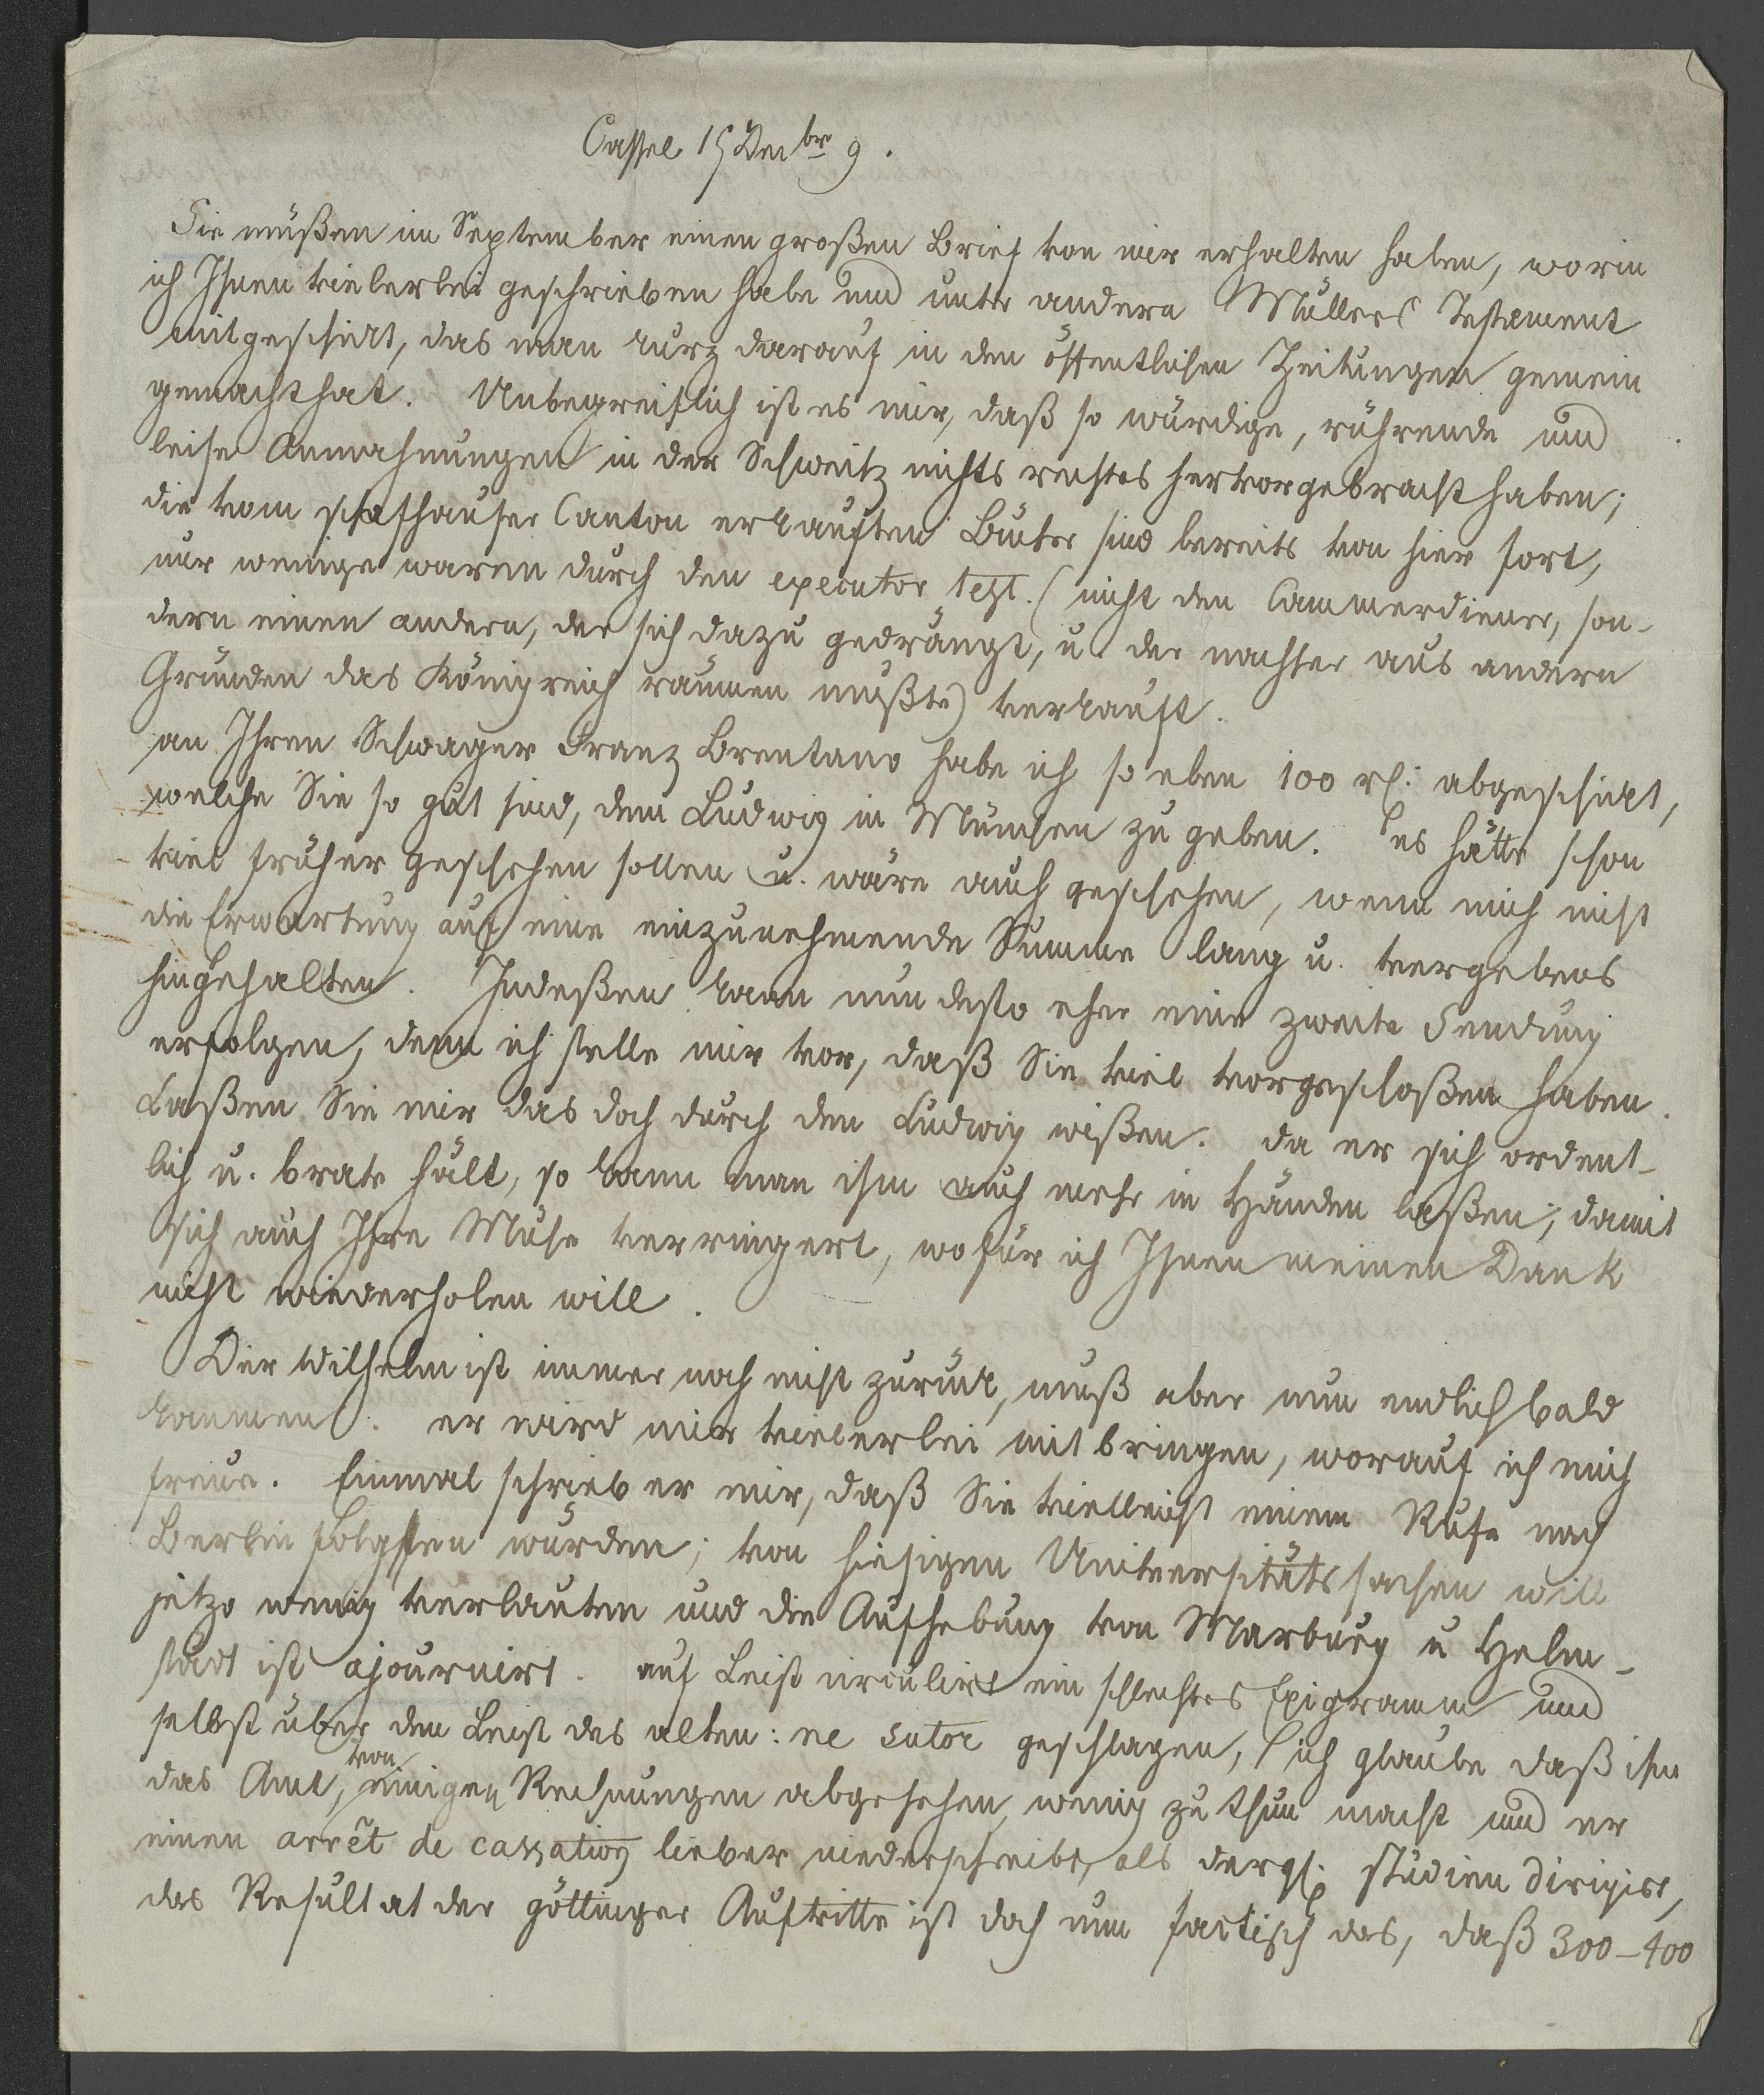 Cassel 15 Dec br 9.
Sie müßen im September einen großen Brief von mir erhalten haben, worin
ich Ihnen vielerlei geschrieben habe und unter andern Müllers Testament
mitgeschickt, das man kurz darauf in den öffentlichen Zeitungen gemein
gemacht hat. Unbegreiflich ist es mir, daß so würdige, rührende und
leise Anmahnungen in der Schweitz nichts rechtes hervorgebracht haben;
die vom schafhauser Canton erkauften Bücher sind bereits von hier fort,
nur wenige waren durch den executor test. (nicht den Cammerdiener, son-
dern einen andern, der sich dazu gedrängt, u. der nachher aus andern
Gründen das Königreich räumen mußte) verkauft.
an Ihren Schwager Franz Brentano habe ich so eben 100 rl: abgeschickt,
welche Sie so gut sind, dem Ludwig in München zu geben. es hätte schon
viel früher geschehen sollen u. wäre auch geschehen, wenn mich nicht
die Erwartung auf eine einzunehmende Summe lang u. vergebens
hingehalten. Indeßen kann nun desto eher eine zweite Sendung
erfolgen, denn ich stelle mir vor, daß Sie viel vorgeschoßen haben.
Laßen Sie mir das doch durch den Ludwig wißen. da er sich ordent-
lich u. brav hält, so kann man ihm auch mehr in Händen laßen, damit
sich auch Ihre Mühe verringert, wofür ich Ihnen meinen Dank
nicht wiederholen will.
Der Wilhelm ist immer noch nicht zurück, muß aber nun endlich bald
kommen. er wird mir vielerlei mitbringen, worauf ich mich
freue. Einmal schrieb er mir, daß Sie vielleicht einem Rufe nach
Berlin folgen würden; von hiesigen Universitätssachen will
jetzo wenig verlauten und die Aufhebung von Marburg u Helm-
städt ist ajournirt. auf Leist circulirt ein schlechtes Epigramm und
selbst über den Leist das alten: ne sutor geschlagen, ich glaube daß ihm
das Amt, von einigen Rechnungen abgesehen, wenig zu thun macht und er
einen arrêt de cassation lieber niederschreibt, als dergl. studien dirigirt,
das Resultat der göttinger Auftritte ist doch nun factisch das, daß 300–400